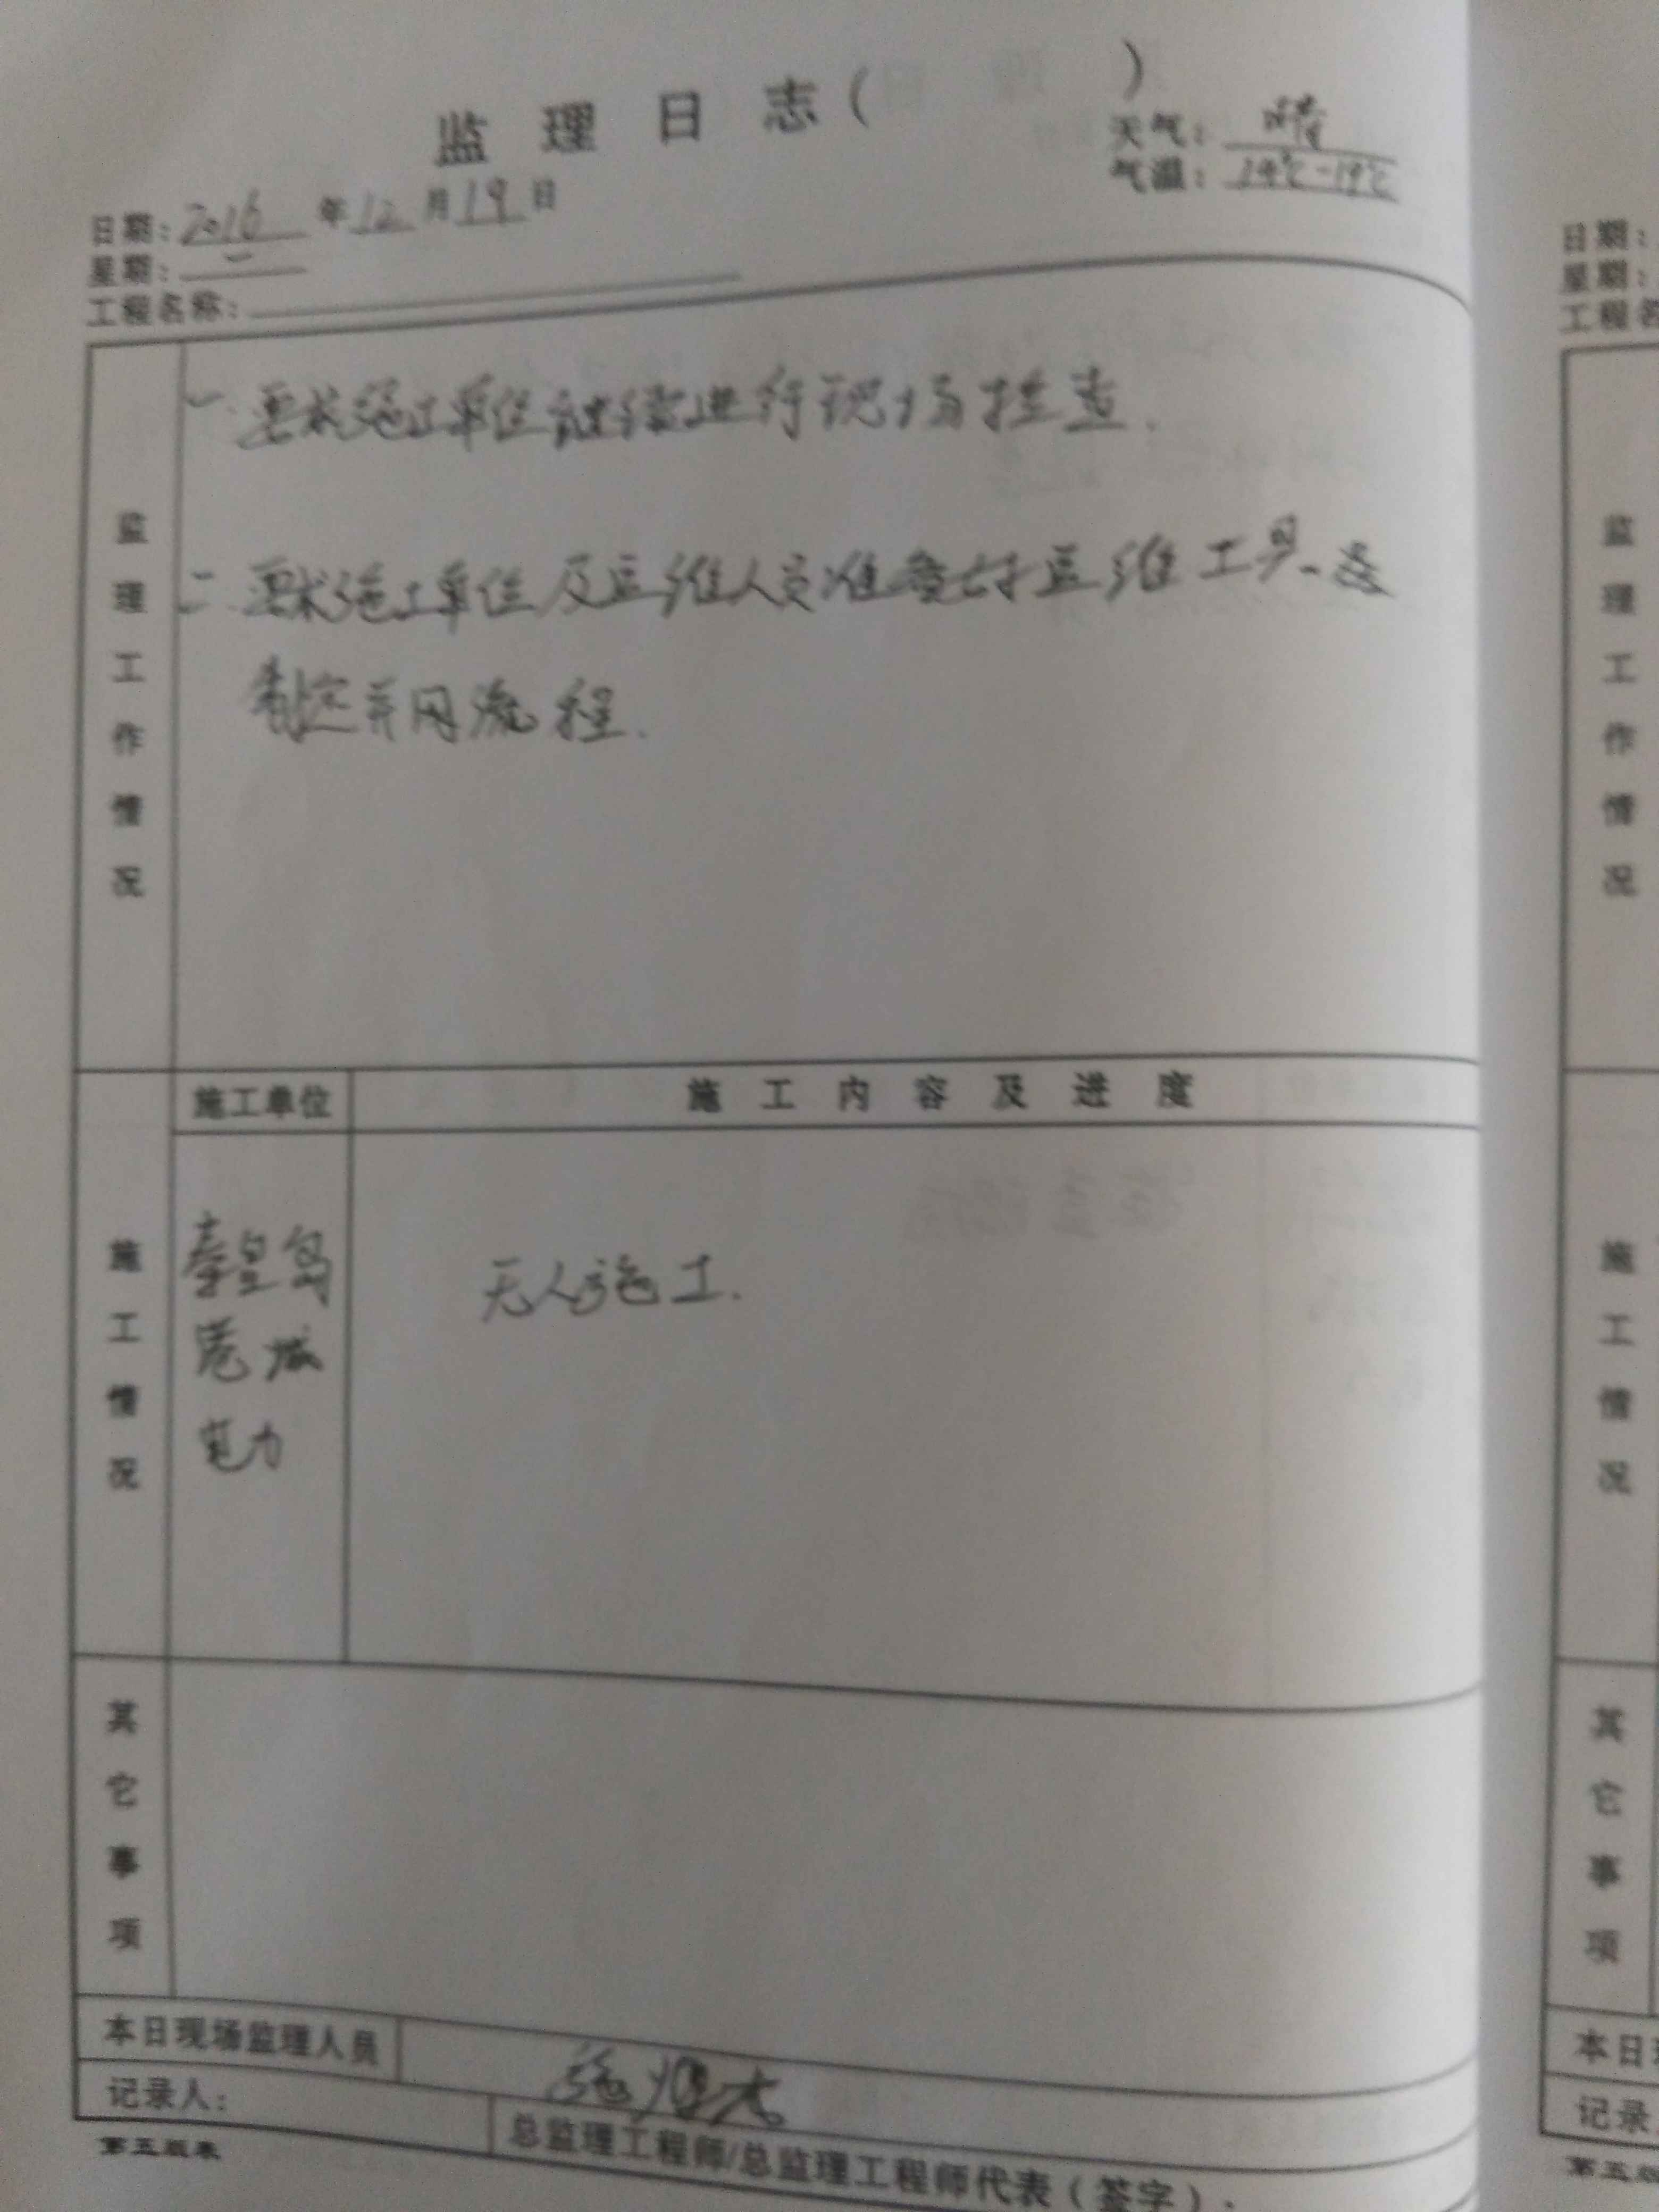 监理日志( )
天气: 晴
气温: 14℃-19℃
日期: 2016年12月19日
星期: 一
工程名称:
监理工作情况
一. 要求施工单位继续进行现场排查.
二. 要求施工单位及运维人员准备好运维工具、及
制定并网流程.
施工单位
施工内容及进度
施工情况
秦皇岛
港城
电力
无人施工.
其它事项
本日现场监理人员
记录人:
总监理工程师/总监理工程师代表(签字):
第五版表
日期:
星期:
工程名
监理工作情况
施工情况
其它事项
本日
记录
第五版